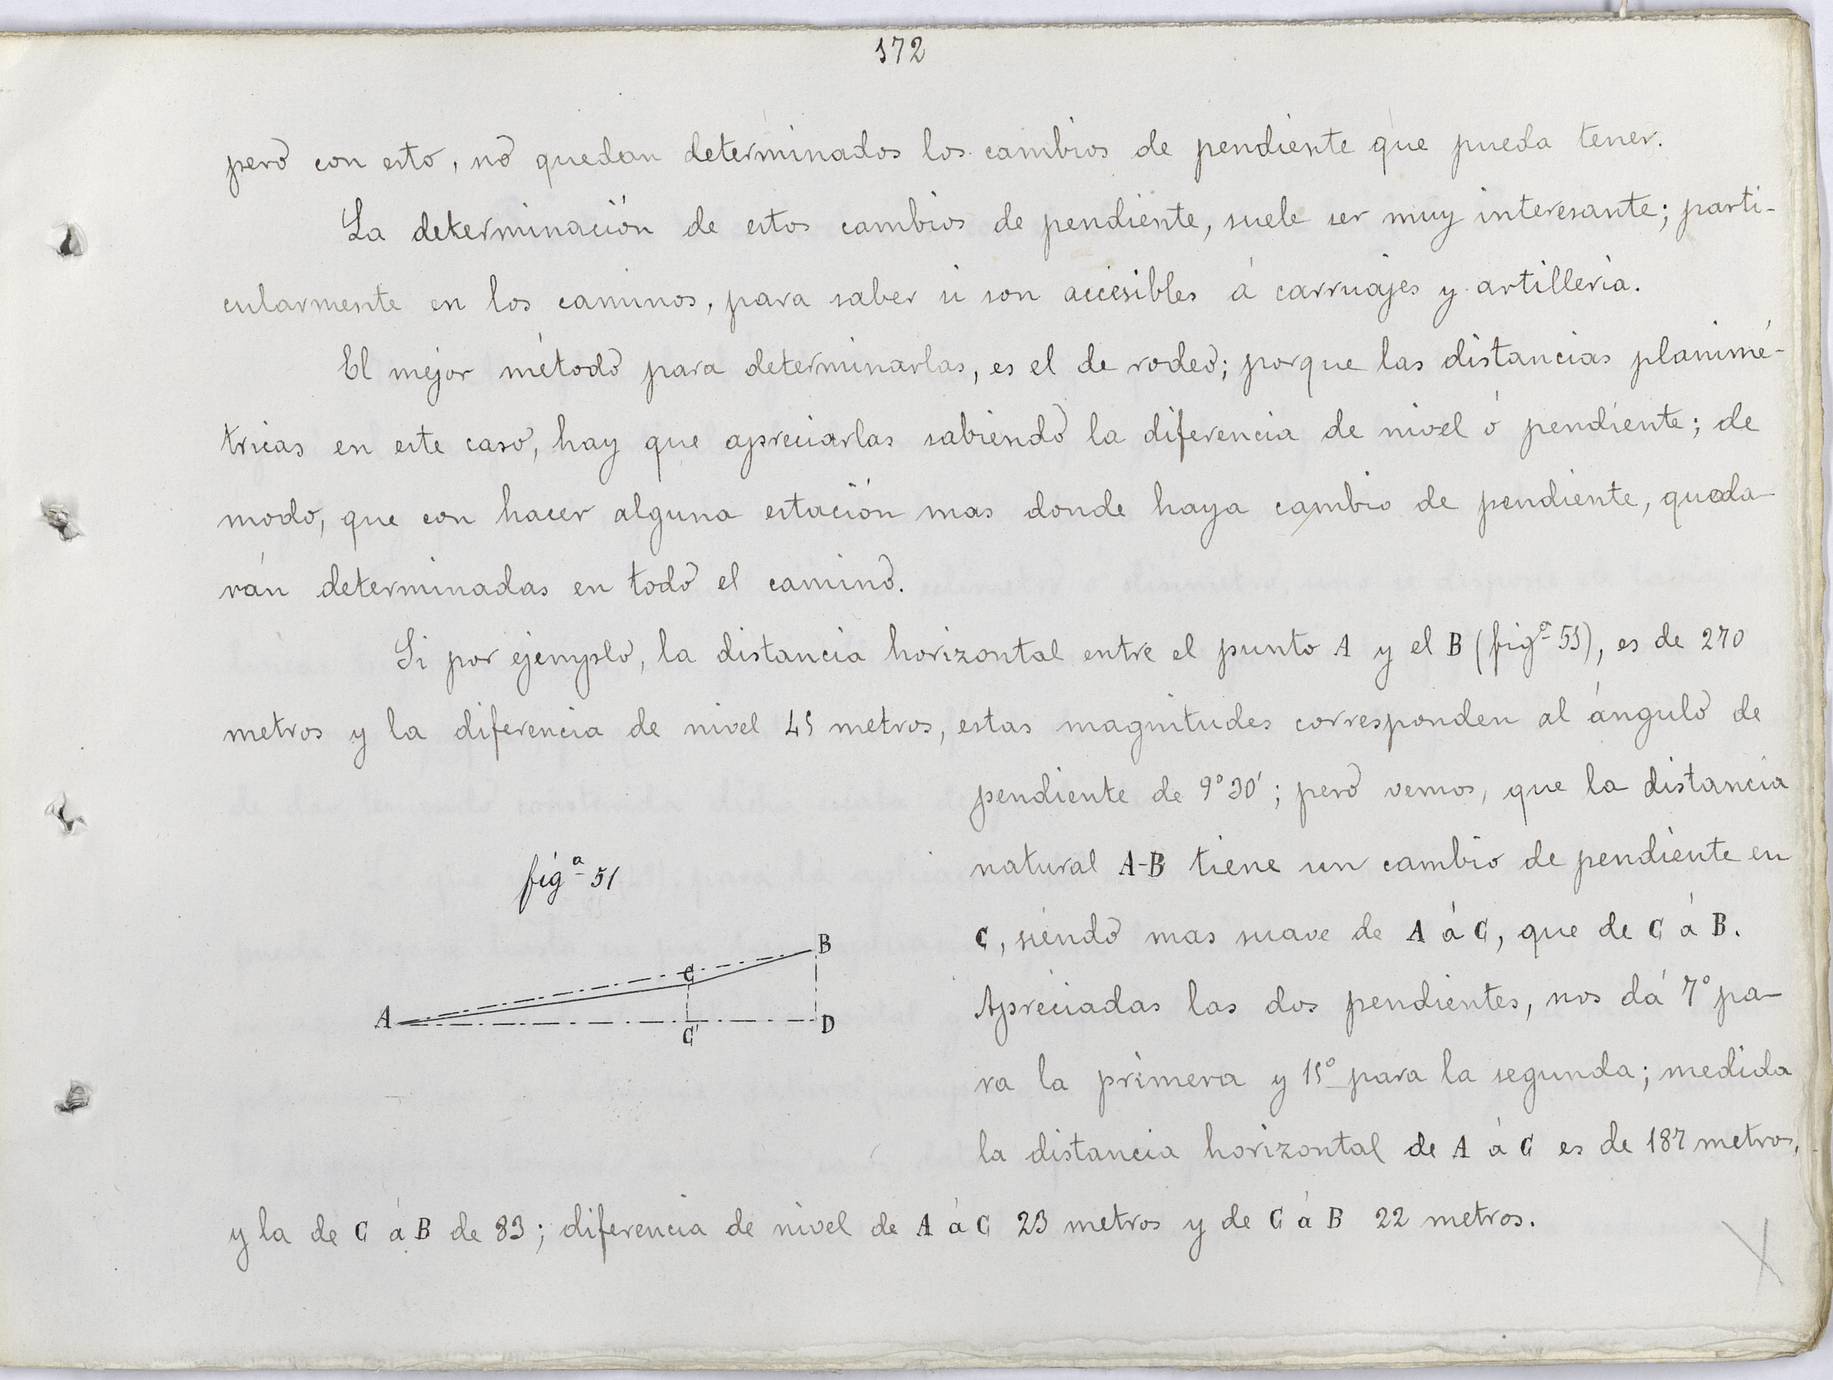 172
pero con esto, no quedan determinados los cambios de pendiente que pueda tener.
La determinación de estos cambios de pendiente, suele ser muy interesante; parti-
cularmente en los caminos, para saber si son accesibles á carruajes y artilleria.
El mejor método para determinarlas, es el de rodeo; porque las distancias planimé-
tricas en este caso, hay que apreciarlas sabiendo la diferencia de nivel ó pendiente; de
modo, que con hacer alguna estación mas donde haya cambio de pendiente, queda-
rán determinadas en todo el camino.
Si por ejemplo, la distancia horizontal entre el punto A y el B (figª 51), es de 270
metros y la diferencia de nivel 45 metros, estas magnitudes corresponden al ángulo de
pendiente de 9° 30'; pero vemos, que la distancia
natural A-B tiene un cambio de pendiente en
C, siendo mas suave de A á C, que de C á B.
Apreciadas las dos pendientes, nos dá 7° pa-
ra la primera y 15° para la segunda; medida
la distancia horizontal de A á C es de 187 metros,
figª 51
B
C
A
C'
D
y la de C á B de 83; diferencia de nivel de A á C 23 metros y de C á B 22 metros.